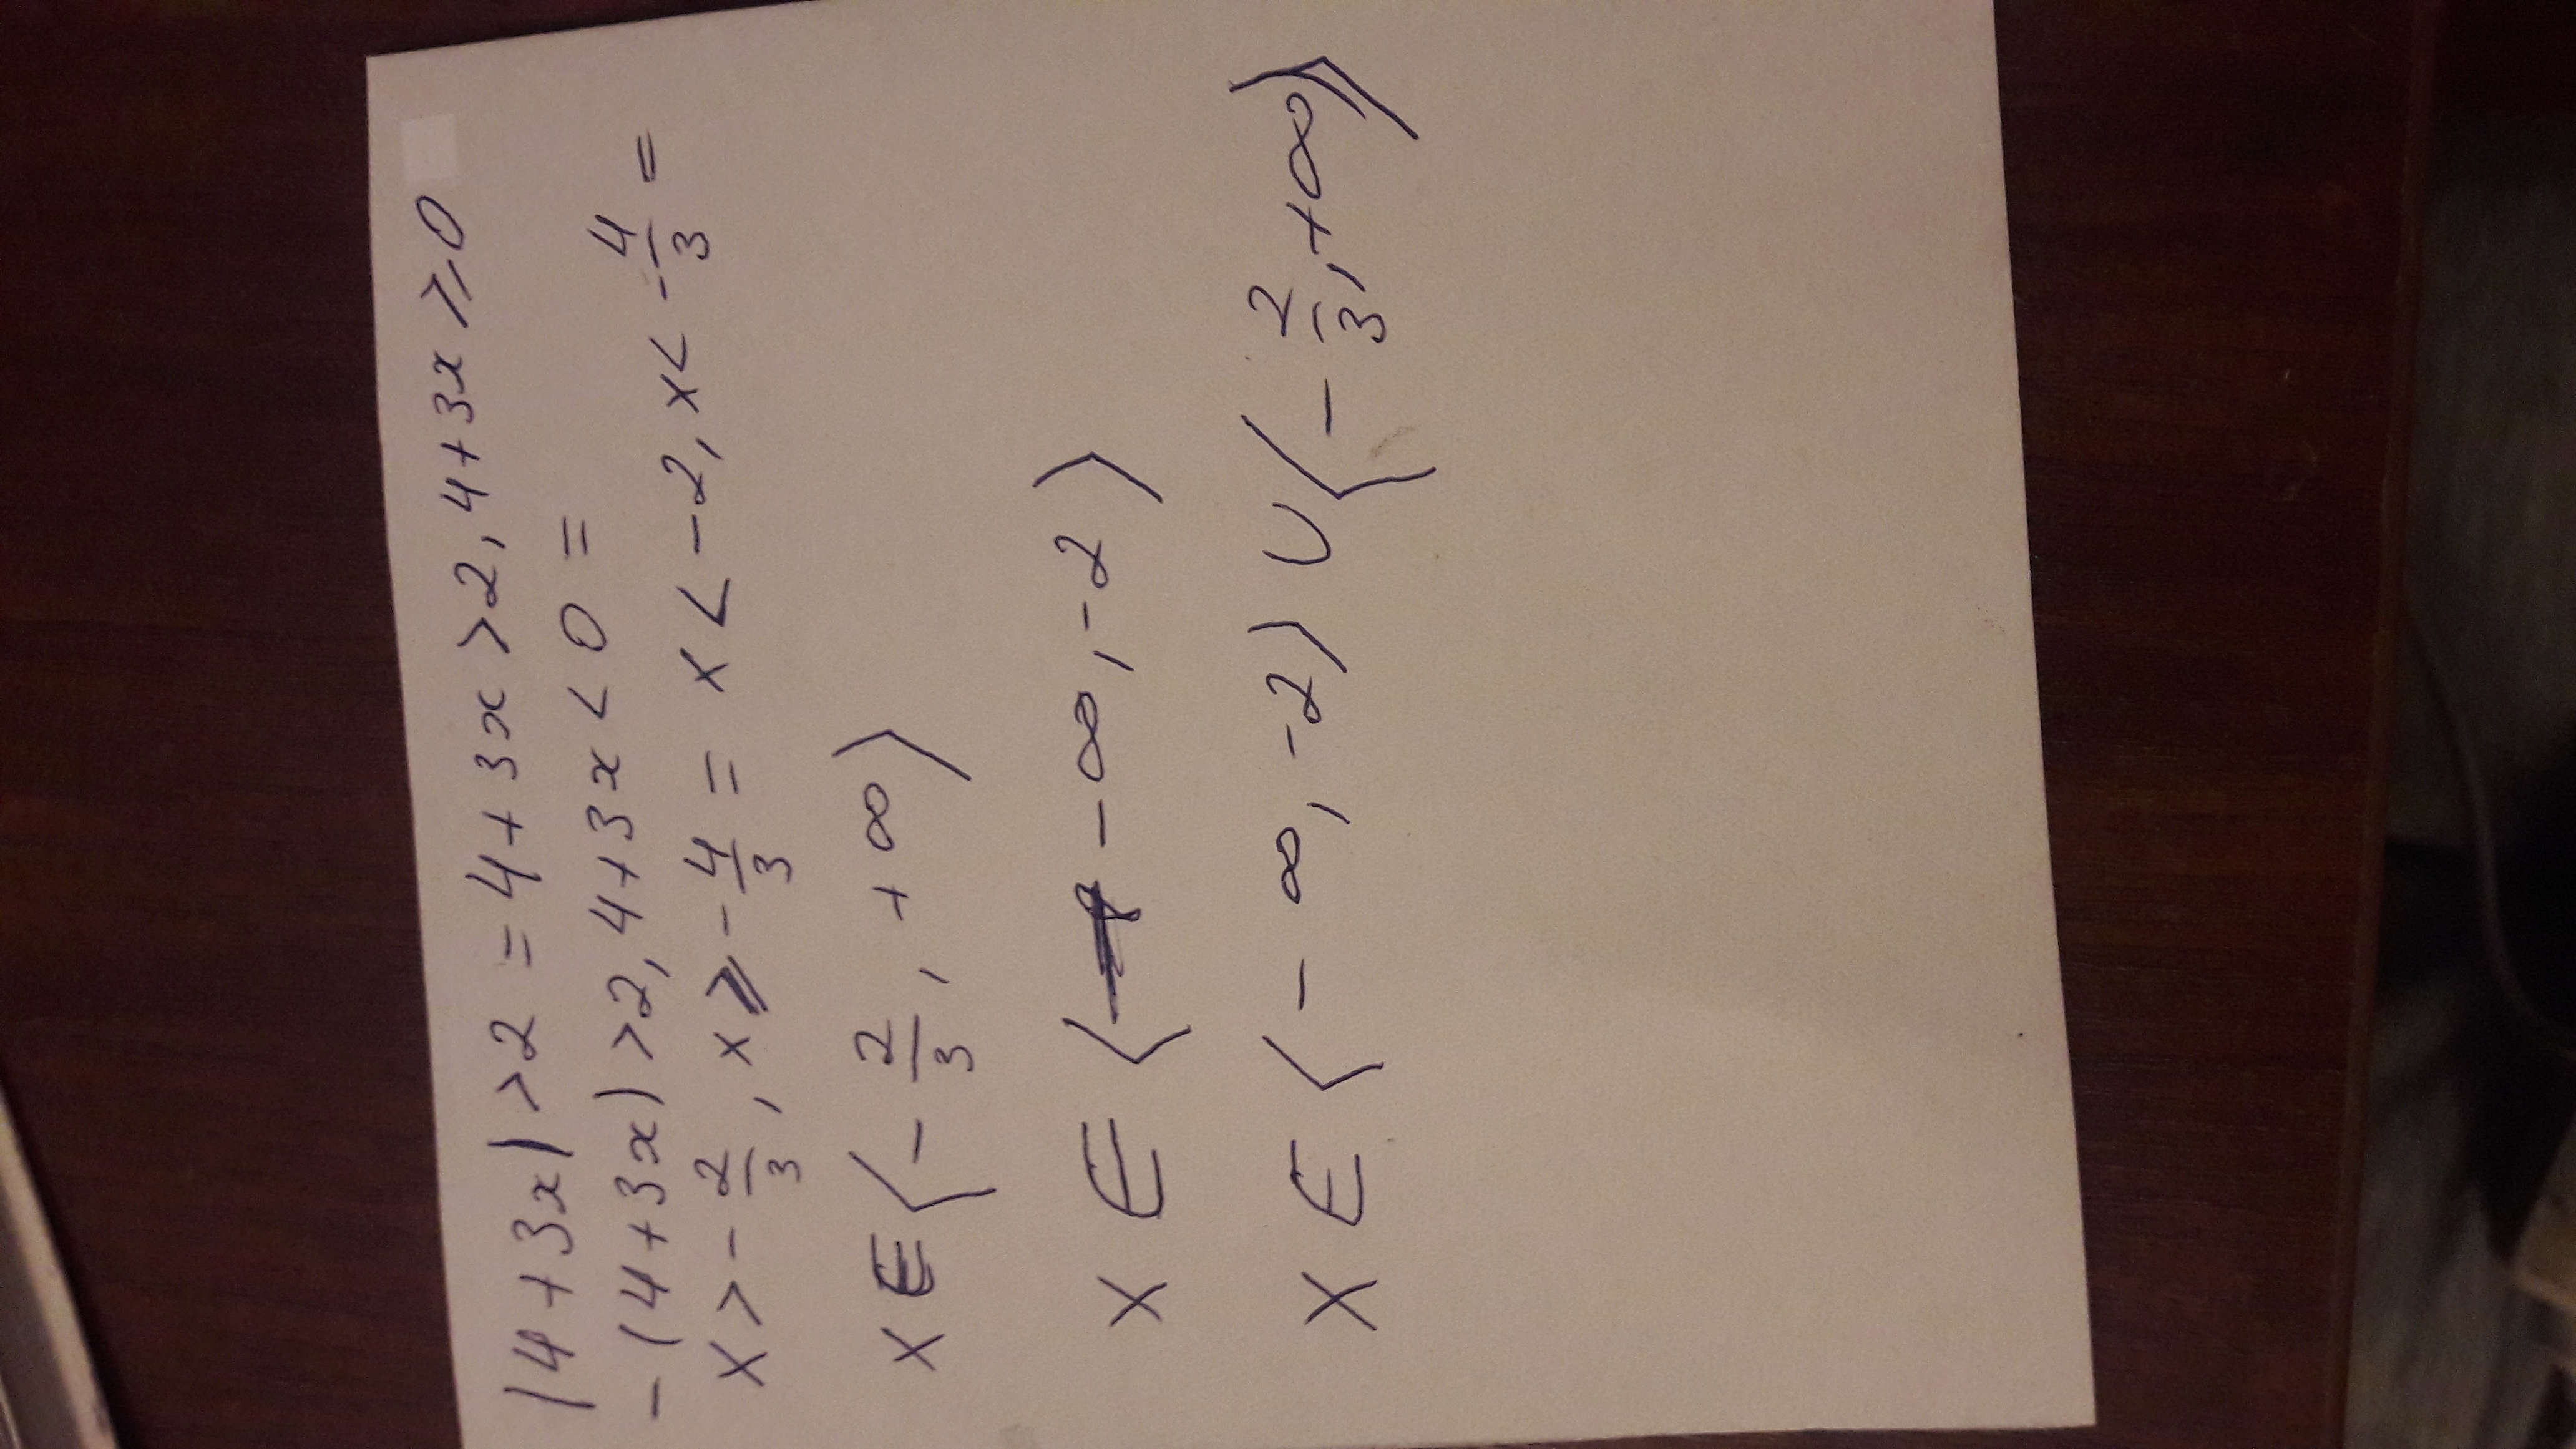 |4+3x|>2 = 4+3x>2, 4+3x⩾0
-(4+3x)>2, 4+3x<0 =
x>-2/3, x⩾-4/3 = x<-2, x<-4/3 =
x∈⟨-2/3, +∞⟩
x∈⟨-∞, -2⟩
x∈⟨-∞, -2⟩∪⟨-2/3, +∞⟩